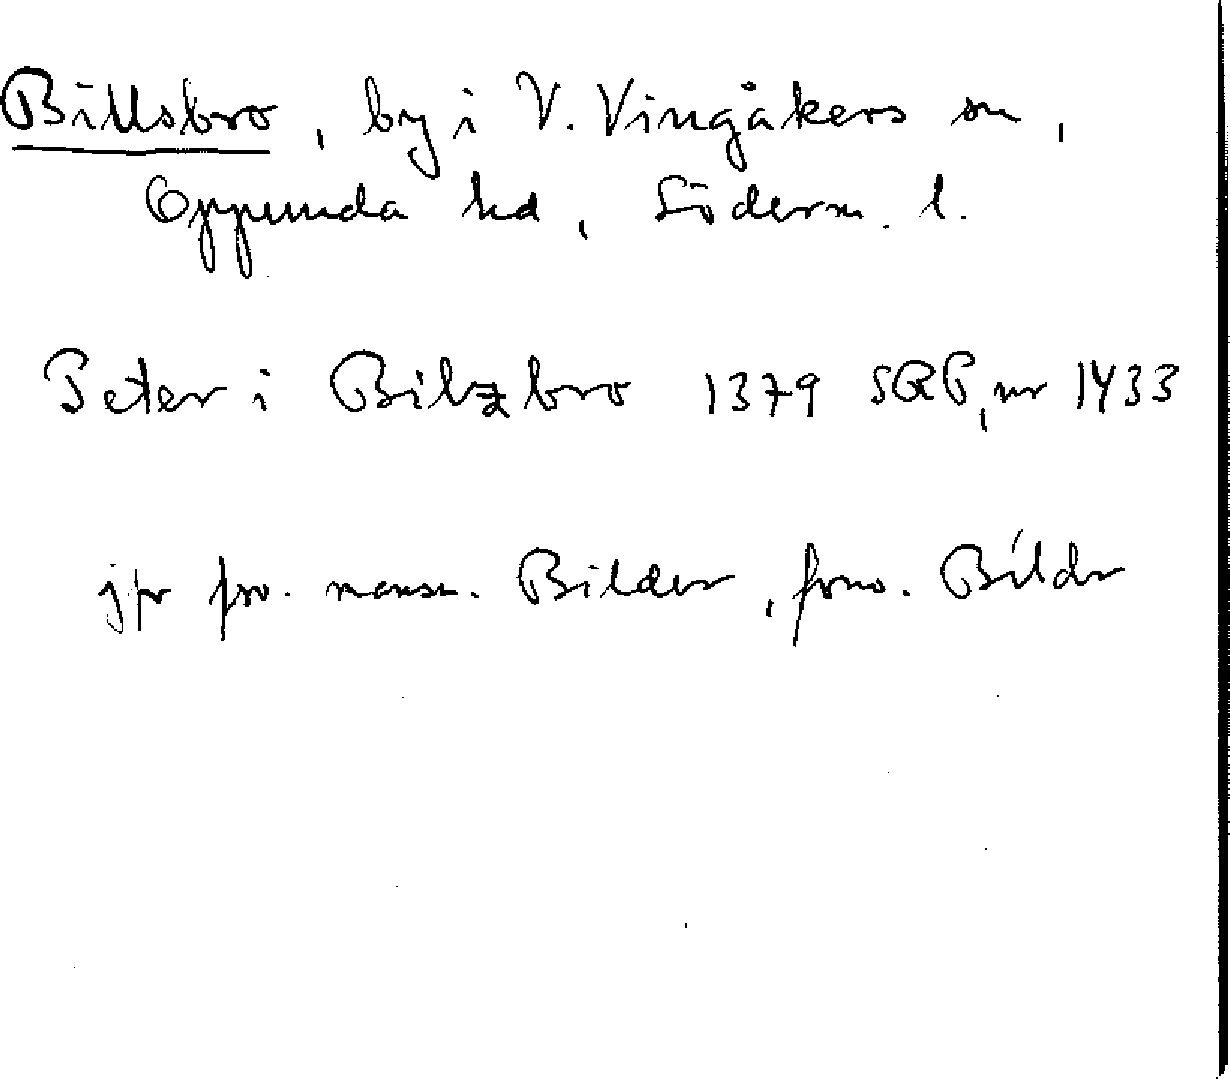 Billsbro, by i V. Vingåkers sn,
Oppunda hd, Söderm. l.
Peter i Bilzbro 1379 SRP, nr 1433
jfr fsv. mansn. Bilder, fvno. Bíldr